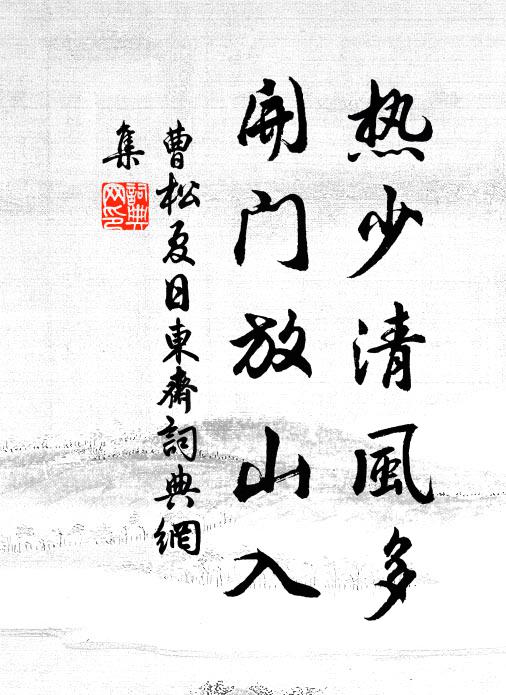 热少清風多
開門放山入
曹松夏日東齋詞典網
集
詞典网印